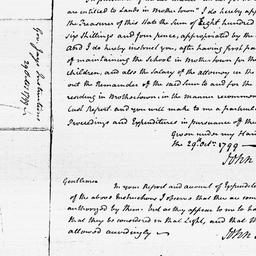 are entitled to Lands in Brothertown" I do hereby app
the Treasurer of this State the Sum of Eight hundred
Six shillings and four pence, appropriated by the
And I do hereby instruct you, after having first pa
of maintaining the School in Brothertown for the
children, and also the Salary of the attorney in the
out the Remainder of the said Sum to and for th
residing in Brothertown in the manner recommen
last Report and you will to me a particul
Proceedings and Expenditures in pursuance of the
Given under my Han
the 29. Octr. 1799
John
Gentlemen
In your Report and account of Expendit
of the above Instructions I observe that they are co
authorized by them: but as they appear to me to ha
that they be considered in that Light, and that th
allowed accordingly
John
Gov Jays Instructions
29 Octr 1799